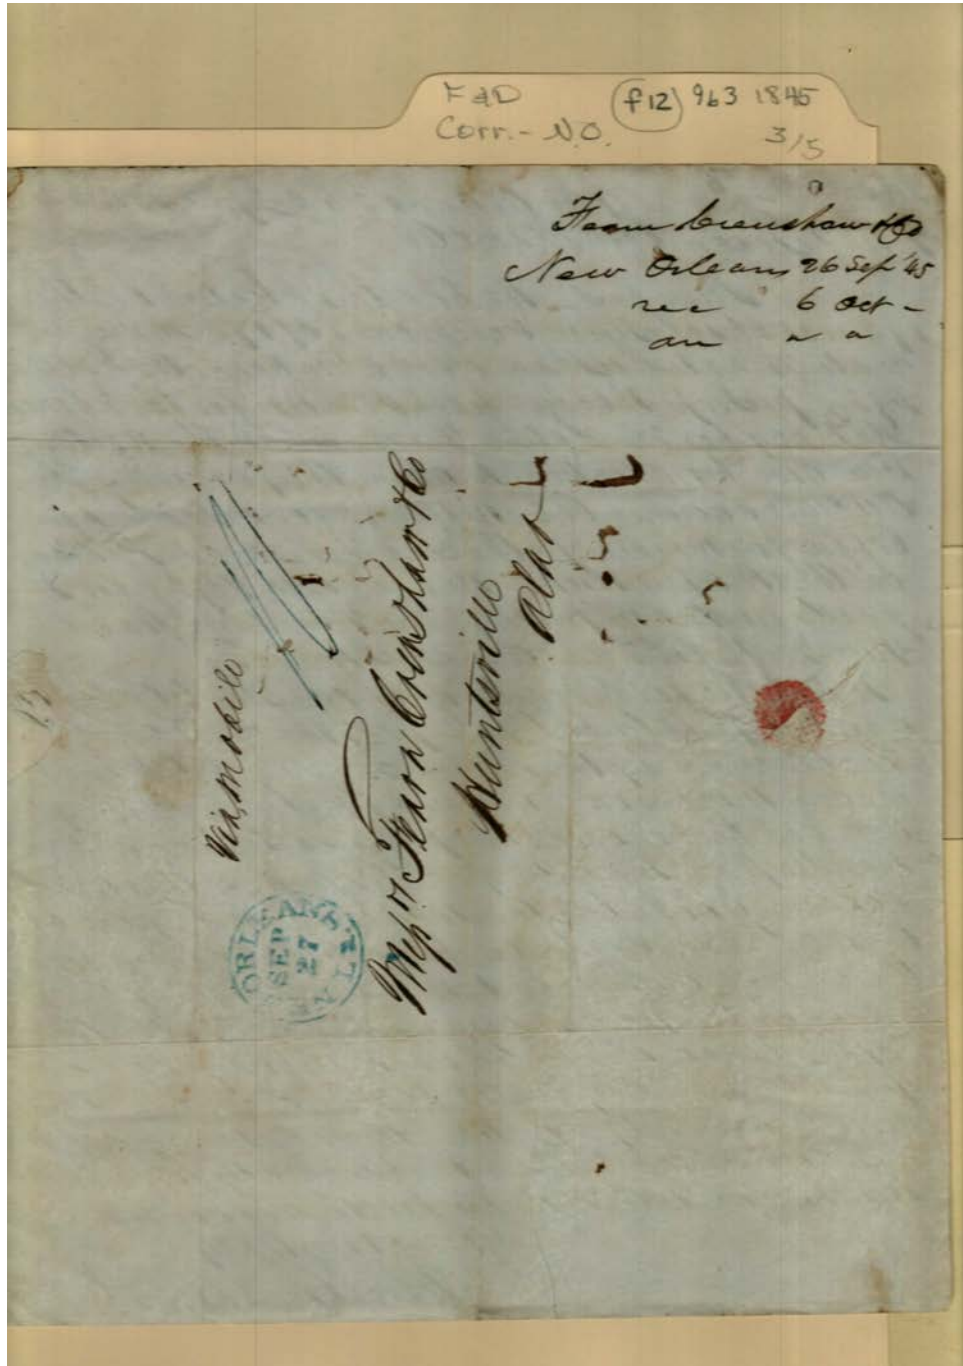 F&D
f12 963 1845
Corr. - N.O.
3/5
Fearn Crenshaw &Co
New Orleans 26 Sep '45
rec 6 Oct -
an " "
Via Mobile
10
Messrs Fearn Crenshaw &Co
Huntsville
Alab
ORLEANS
SEP
27
LA